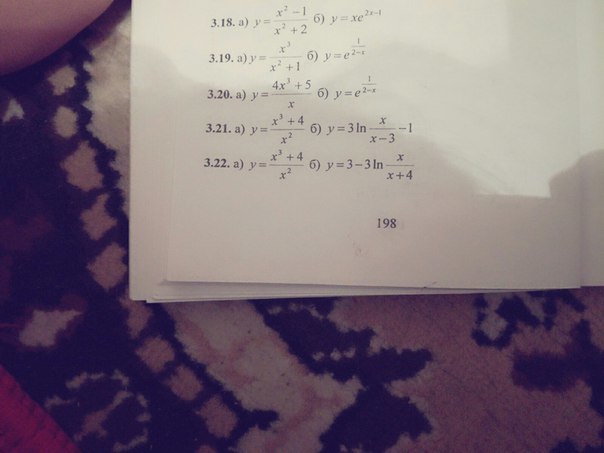 3.18. а) y = \frac{x^2 - 1}{x^2 + 2} б) y = xe^{2x-1}
3.19. а) y = \frac{x^3}{x^2 + 1} б) y = e^{\frac{1}{2-x}}
3.20. а) y = \frac{4x^3 + 5}{x} б) y = e^{\frac{1}{2-x}}
3.21. а) y = \frac{x^3 + 4}{x^2} б) y = 3 ln \frac{x}{x-3} - 1
3.22. а) y = \frac{x^3 + 4}{x^2} б) y = 3 - 3 ln \frac{x}{x+4}
198